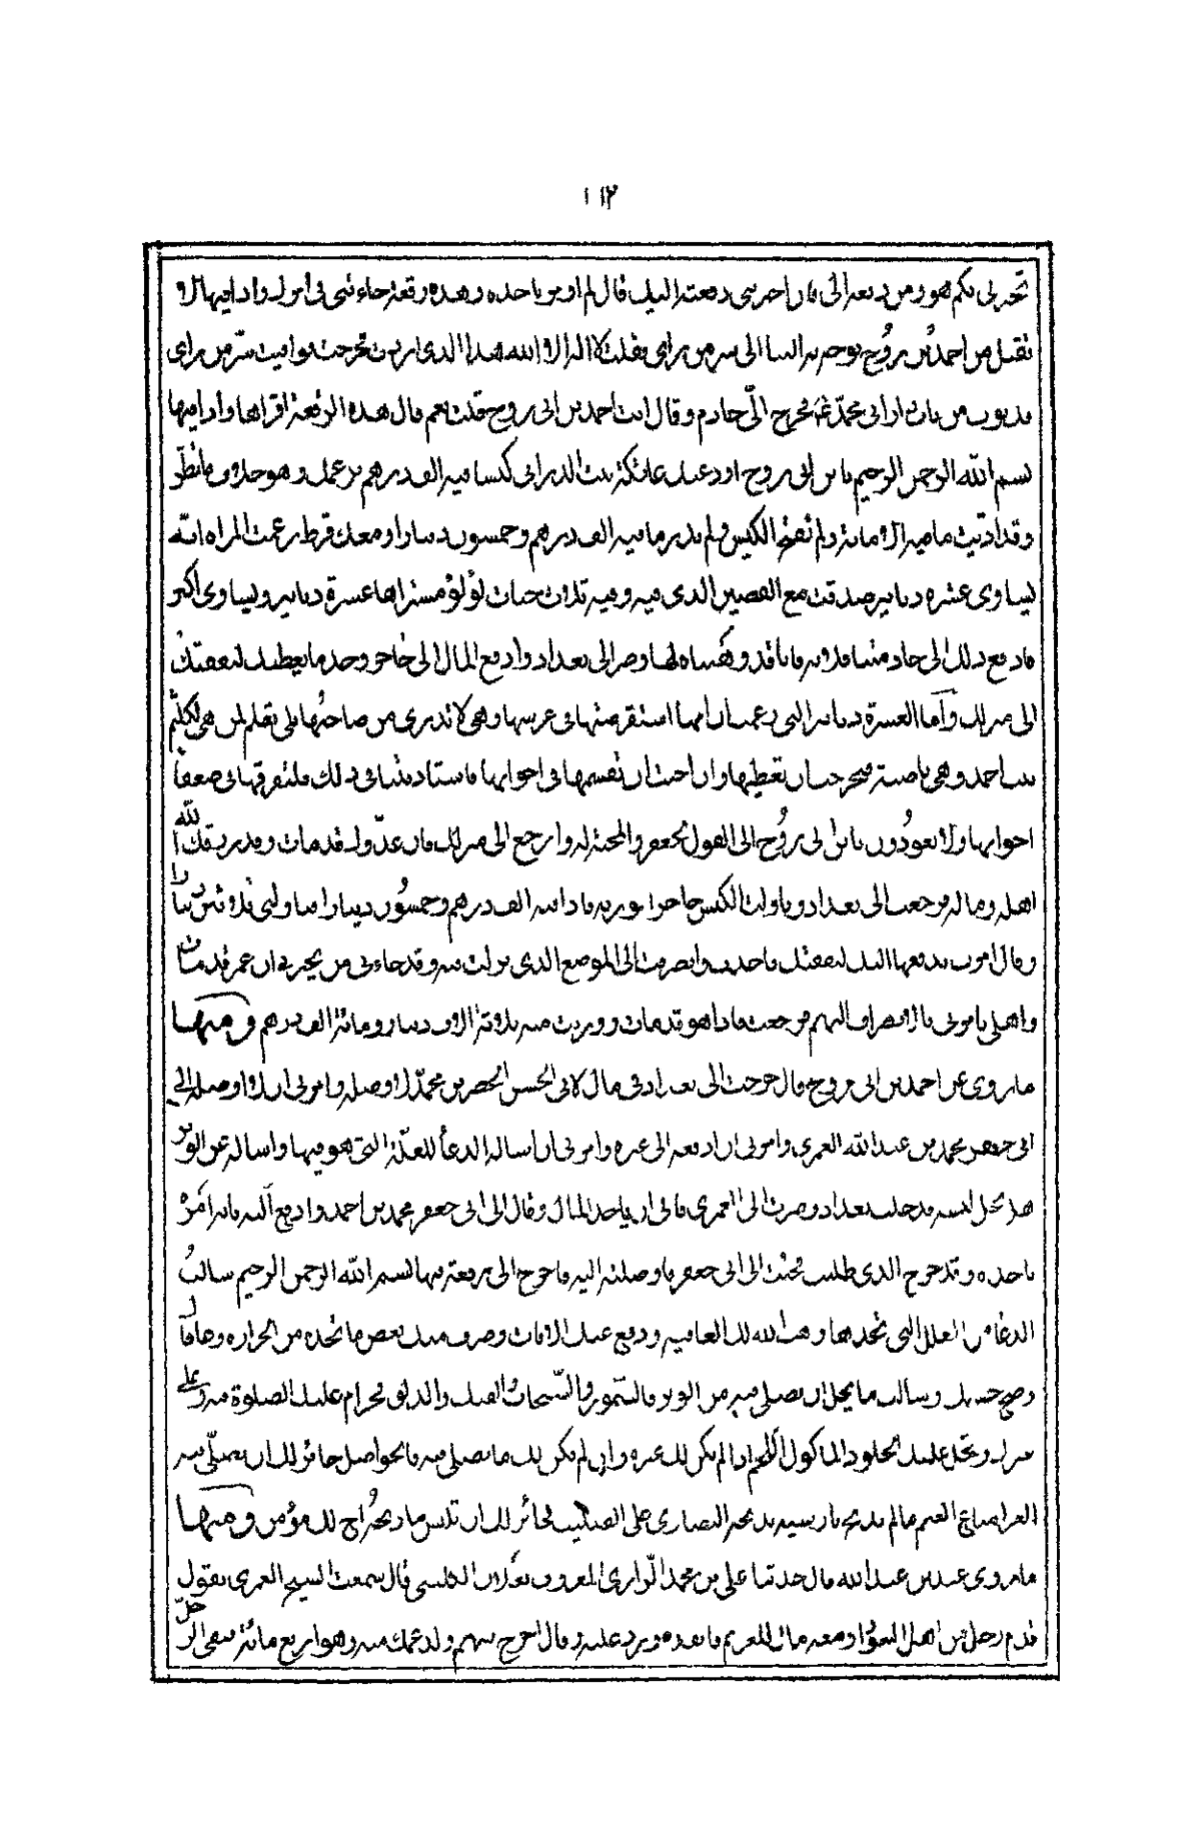 ١١٢
تخبرني بكم هو ومن دفعه الى فان اخبرتني دفعته اليك قال لم اومر باخذه وهذه رقعة جاءتني في امرك واذا فيها لا
تقبل من احمد بن روح توجه به الينا الى سر من راى فقلت لا اله الا الله هذا الذي اردت فخرجت ووافيت سر من راى
باب دار ابي محمد ع فخرج الي خادم وقال انت احمد بن ابي روح قلت نعم قال هذه الرقعة اقراها واذا فيها
بسم الله الرحمن الرحيم يا بن ابي روح اودعتك عاتكة بنت الديراني كيسا فيه الف درهم بزعمك وهو خلاف ما تظن
وقد اديت ما فيه الامانة ولم تفتح الكيس ولم تدر ما فيه الف درهم وخمسون دينارا ومعك قرط زعمت المراه انه
يساوي عشره دنانير صدقت مع الفصين الذي فيه وفيه ثلاث حبات لؤلؤ مشتراها عشرة دنانير ويساوي اكثر
فادفع ذلك الى خادمتنا فلانه فانا قد وهبناه لها وصر الى بغداد وادفع المال الى حاجز وخذ ما يعطيك لنفقتك
الى منزلك واما العشرة دنانير التي زعمت ان امها استقرضتها في عرسها وهي لا تدري من صاحبها بلى تعلم لمن هي لكلثم
بنت احمد وهي ناصبة فتحرجت ان تعطيها وان احبت ان تقسمها في اخواتها فاستاذنتنا في ذلك فلتفرقها في ضعفا
اخواتها ولا تعودن يا بن ابي روح الى القول بجعفر والمحنة له وارجع الى منزلك فان عدوك قد مات وقد رزقك الله
اهله وماله فرجعت الى بغداد وناولت الكيس حاجزا فوزنه فاذا فيه الف درهم وخمسون دينارا فناولني ثلاثين دينارا
وقال امرت بدفعها اليك لنفقتك فاخذتها وانصرفت الى الموضع الذي نزلت فيه وقد جاءني من يخبرني ان عمي قد مات
واهلي يامروني بالانصراف اليهم فرجعت فاذا هو قد مات وورثت منه ثلاثة الاف دينار ومائة الف درهم ومنها
ما روى عن احمد بن ابي روح قال خرجت الى بغداد في مال لابي الحسن الخضر بن محمد لاوصله وامرني ان اوصله الى
ابي جعفر محمد بن عبد الله العمري وامرني ان لا ادفعه الى غيره وامرني ان اساله الدعا للعلة التي هو فيها واساله عن الوبر
هل يحل لبسه فدخلت بغداد وصرت الى العمري فابى ان ياخذ المال وقال الى ابي جعفر محمد بن احمد وادفع اليه فانه امره
باخذه وقد خرج الذي طلبت فجئت الى ابي جعفر فاوصلته اليه فاخرج الي رقعة فيها بسم الله الرحمن الرحيم سالت
الدعا من العلل التي تجدها وهب الله لك العافيه ودفع عنك الافات وصرف عنك بعض ما تجده من الحراره وعافاك
وصح جسمك وسالت ما يحل ان يصلى فيه من الوبر والسمور والسنجاب والفنك والدلق فحرام عليك الصلوة فيه وعلى
غيرك ويحل عليك الجلود الماكول اللحم اذا لم يكن لك غيره وان لم يكن لك ما تصلي فيه فالحواصل جائز لك ان تصلي فيه
الفرا متاع الغنم ما لم تذبح بارمنيه تذبحه النصارى على الصليب فجائز لك ان تلبس ما ذبحه اخ لك مؤمن ومنها
ما روى عن بن عبد الله قال حدثنا علي بن محمد الرازي المعروف بعلان الكليني قال سمعت الشيخ العمري يقول
قدم رجل من اهل السواد ومعه مال للغريم فانفذه فرد عليه وقال اخرج سهم ولد عمك منه وهو اربع مائة فبقى الرجل